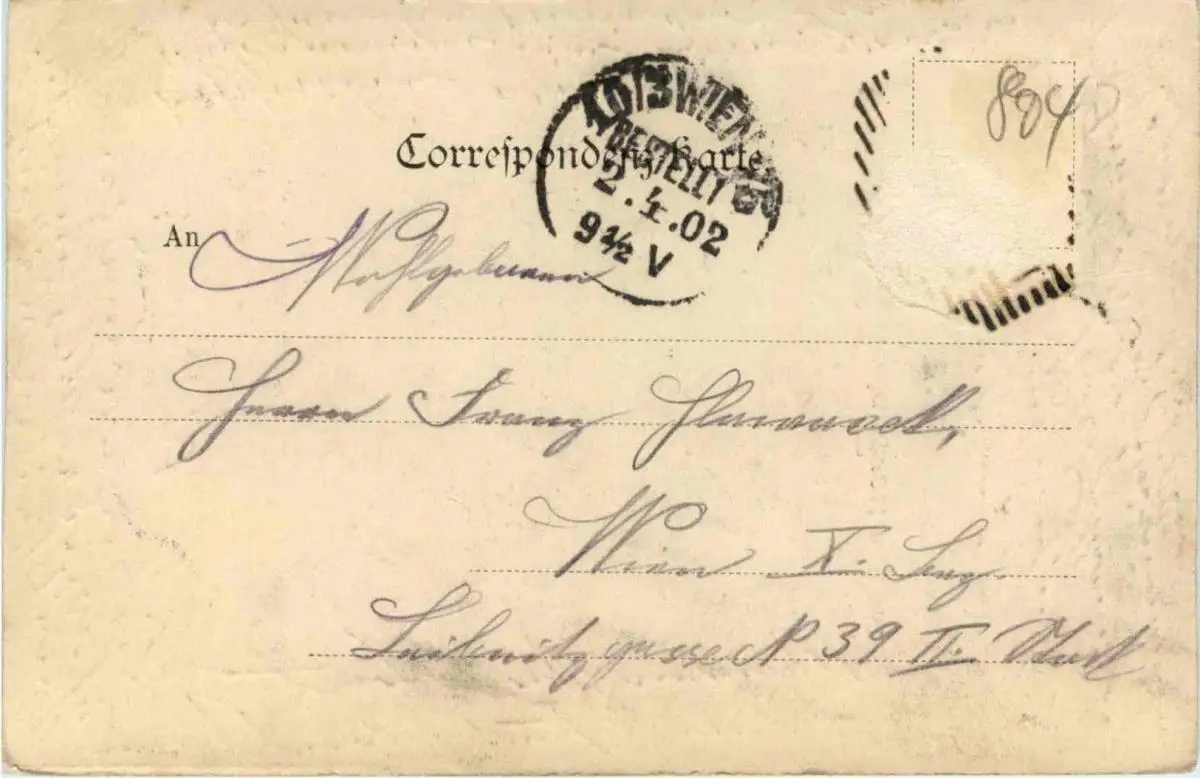 884
10/3 WIEN
BESTELLT
2.4.02
9½ V
Correspondenz-Karte
An Wohlgeboren
Herrn Franz
Wien X. Bez.
Leibnitzgasse N 39 II. Stock